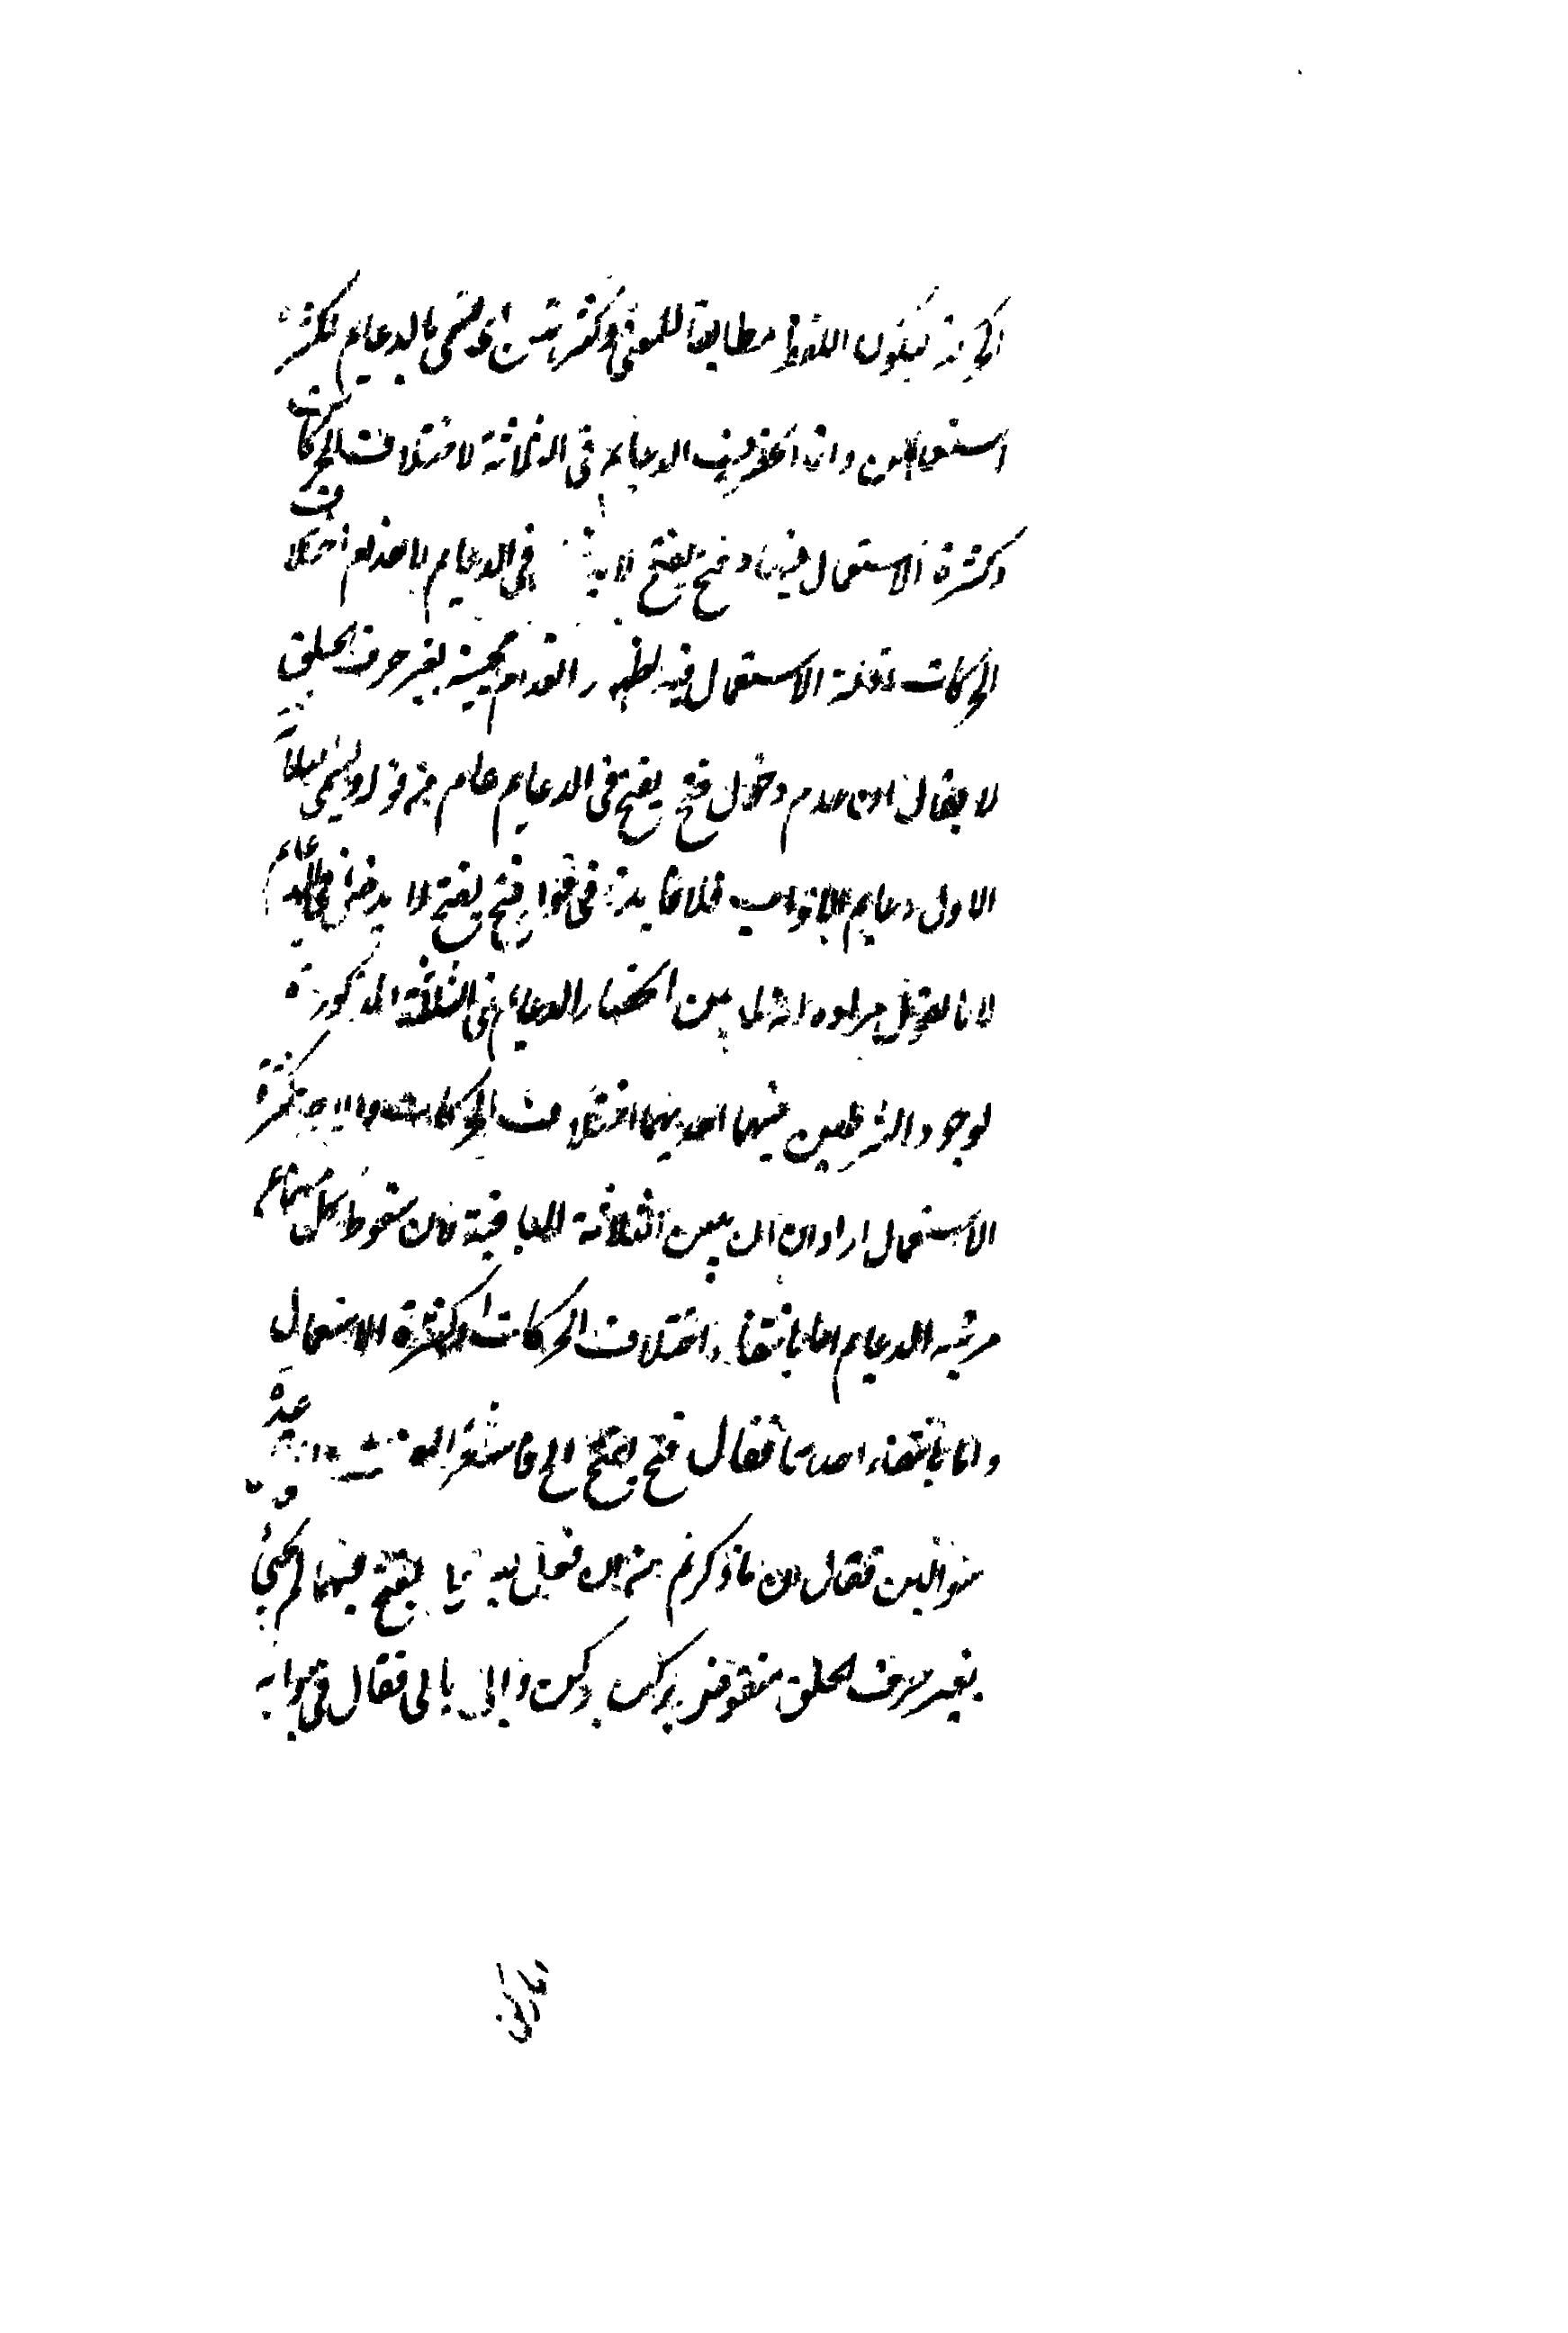 ليكون اللفظ مطابقا للمعنى وكثرتهن اي وتسمى بالدعايم لكثرة
استعمالهن وانما انحصرت الدعايم في الثلاثة لاختلاف الحركات
وكثرة الاستعمال فيها وفتح يفتح لا يدخل في الدعايم لانعدام اختلاف
الحركات وقلة الاستعمال فيه لظهور انعدام مجيئه بغير حرف الحلق
لا يقال ان عدم دخول فتح يفتح في الدعايم علم من قوله وتسمى الثلثة
الاول دعايم الابواب فلا فايدة في قوله فتح يفتح لا يدخل في الدعايم
لانا نقول مراده انه لما بين انحصار الدعايم في الثلاثة المذكورة
لوجود الشرطين فيها احديهما اختلاف الحركات والاخر كثرة
الاستعمال اراد ان يبين الثلاثة الباقية لان سقوط كل منها عن
مرتبة الدعايم اما بانتفاء اختلاف الحركات وكثرة الاستعمال
واما بانتفاء احدهما فقال فتح يفتح الى
سؤالين فقال ان ما ذكرتم من ان فعل يفعل بفتح فيهما لم يجئ
بغير حرف الحلق منقوض بركن يركن وابى يابى فقال في جوابه